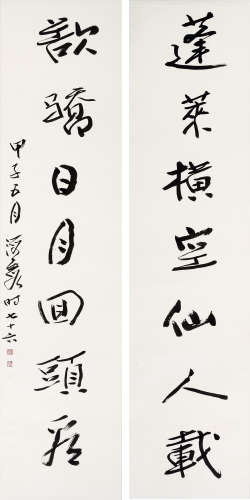 蓬萊橫空仙人載
日月回頭
甲子五月
时七十六